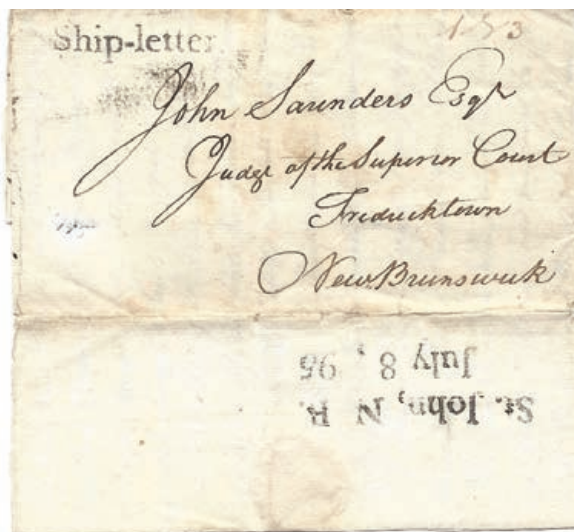 Ship-letter.
John Saunders Esqr
Judge of the Superior Court
Fredricktown
New Brunswick
St. John, N. B.
July 8, 95